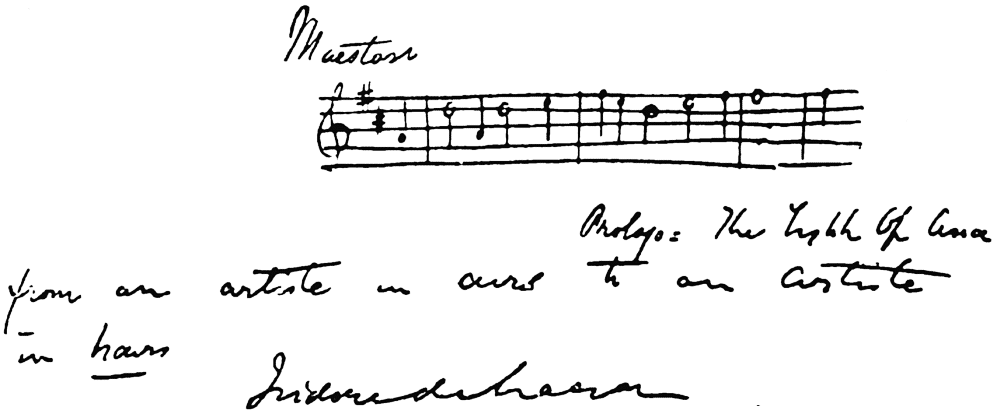 Maestoso
Prologo: The Light Of Asia
from an artiste in airs to an artiste
in hairs
Isidore de Lara